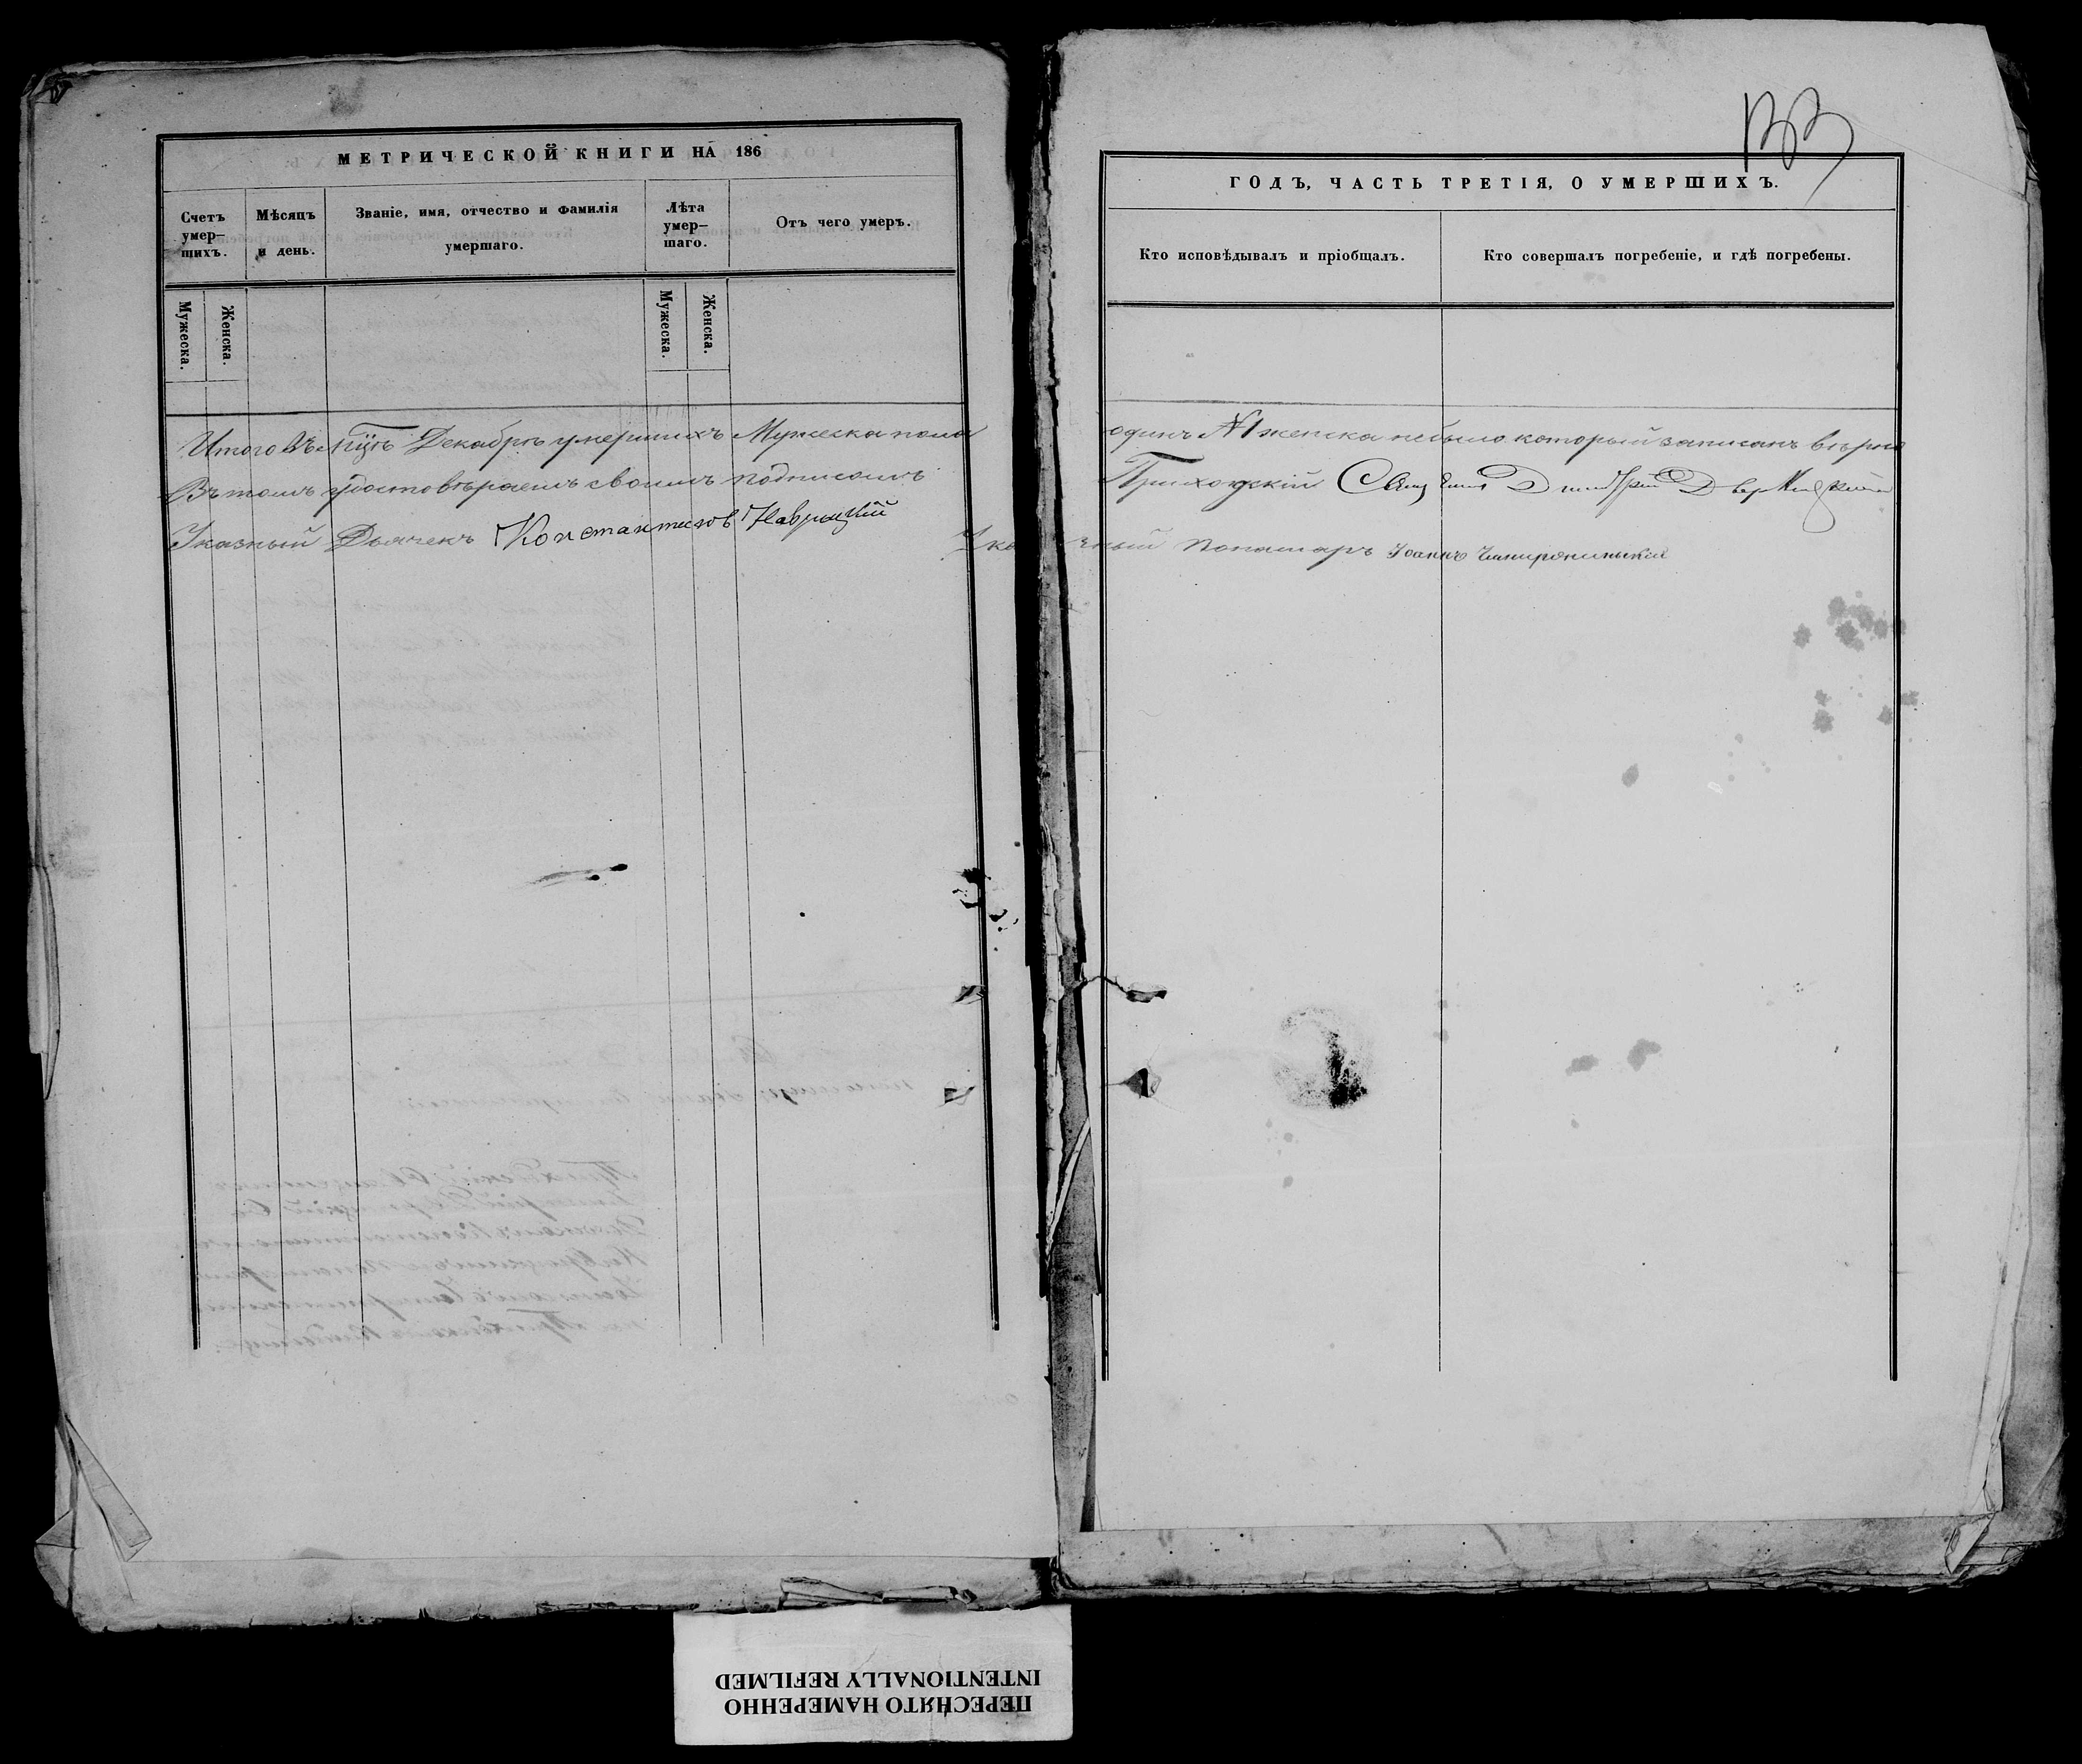 МЕТРИЧЕСКОЙ КНИГИ НА 186
Счетъ умер-шихъ.
Мѣсяцъ и день.
Званіе, имя, отчество и фамилія умершаго.
Лѣта умер-шаго.
Отъ чего умеръ.
Мужеска.
Женска.
Мужеска.
Женска.
Итого въ Декабрѣ умершихъ Мужеска пола
Въ томъ удостовѣраемъ своимъ подписомъ
Указный Дьячекъ Константинов Навроцкій
ГОДЪ, ЧАСТЬ ТРЕТІЯ, О УМЕРШИХЪ.
Кто исповѣдывалъ и пріобщалъ.
Кто совершалъ погребеніе, и гдѣ погребены.
одинъ №1 женска небыло который записанъ вѣрно
Приходскій Димитрій
Указный Понамарь Іоаннъ
ПЕРЕСНЯТО НАМЕРЕННО
INTENTIONALLY REFILMED